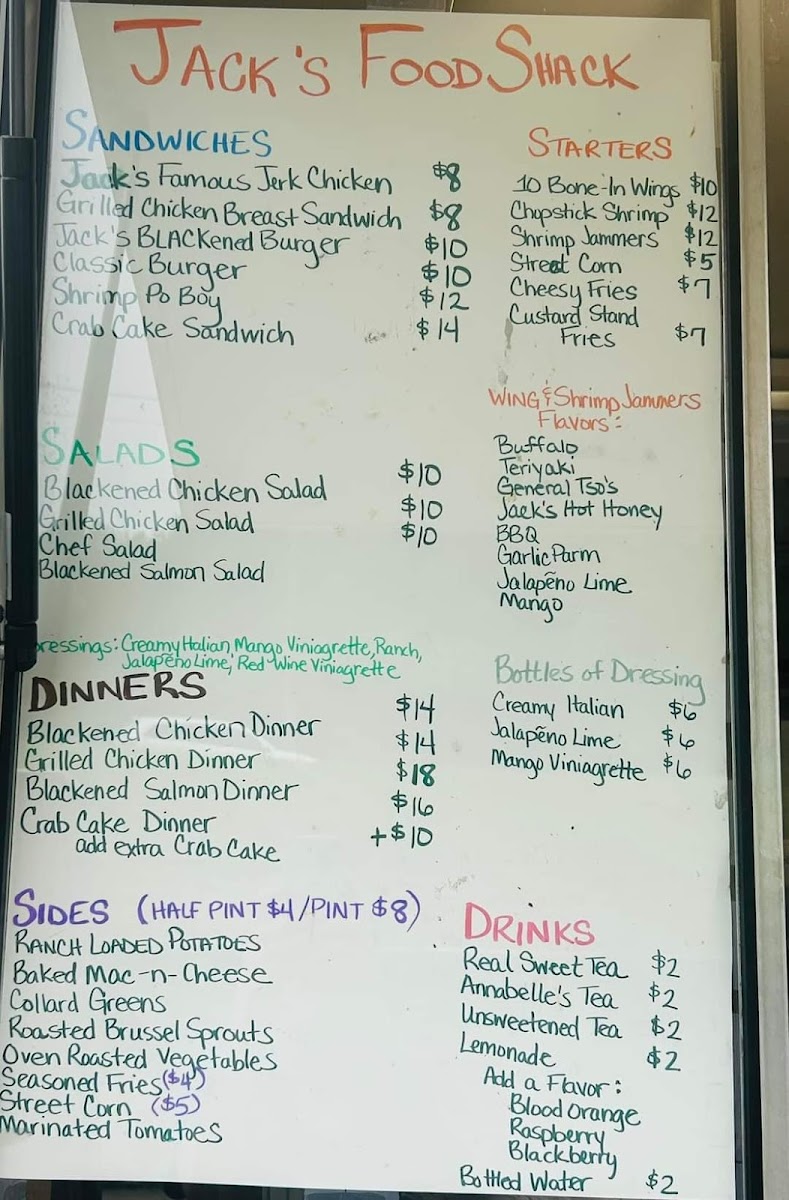 JACK'S FOOD SHACK
SANDWICHES
Jack's Famous Jerk Chicken $8
Grilled Chicken Breast Sandwich $8
Jack's BLACKened Burger $10
Classic Burger $10
Shrimp Po Boy $12
Crab Cake Sandwich $14
STARTERS
10 Bone-In Wings $10
Chopstick Shrimp $12
Shrimp Jammers $12
Street Corn $5
Cheesy Fries $7
Custard Stand
Fries $7
WING & Shrimp Jammers
Flavors:
Buffalo
Teriyaki
General Tso's
Jack's Hot Honey
BBQ
Garlic Parm
Jalapẽno Lime
Mango
SALADS
Blackened Chicken Salad $10
Grilled Chicken Salad $10
Chef Salad $10
Blackened Salmon Salad
Dressings: Creamy Italian, Mango Viniagrette, Ranch,
Jalapẽno Lime, Red Wine Viniagrette
Bottles of Dressing
Creamy Italian $6
Jalapẽno Lime $6
Mango Viniagrette $6
DINNERS
Blackened Chicken Dinner $14
Grilled Chicken Dinner $14
Blackened Salmon Dinner $18
Crab Cake Dinner $16
add extra Crab Cake +$10
SIDES (HALF PINT $4/PINT $8)
RANCH LOADED POTATOES
Baked Mac-n-Cheese
Collard Greens
Roasted Brussel Sprouts
Oven Roasted Vegetables
Seasoned Fries ($4)
Street Corn ($5)
Marinated Tomatoes
DRINKS
Real Sweet Tea $2
Annabelle's Tea $2
Unsweetened Tea $2
Lemonade $2
Add a Flavor:
Blood Orange
Raspberry
Blackberry
Bottled Water $2